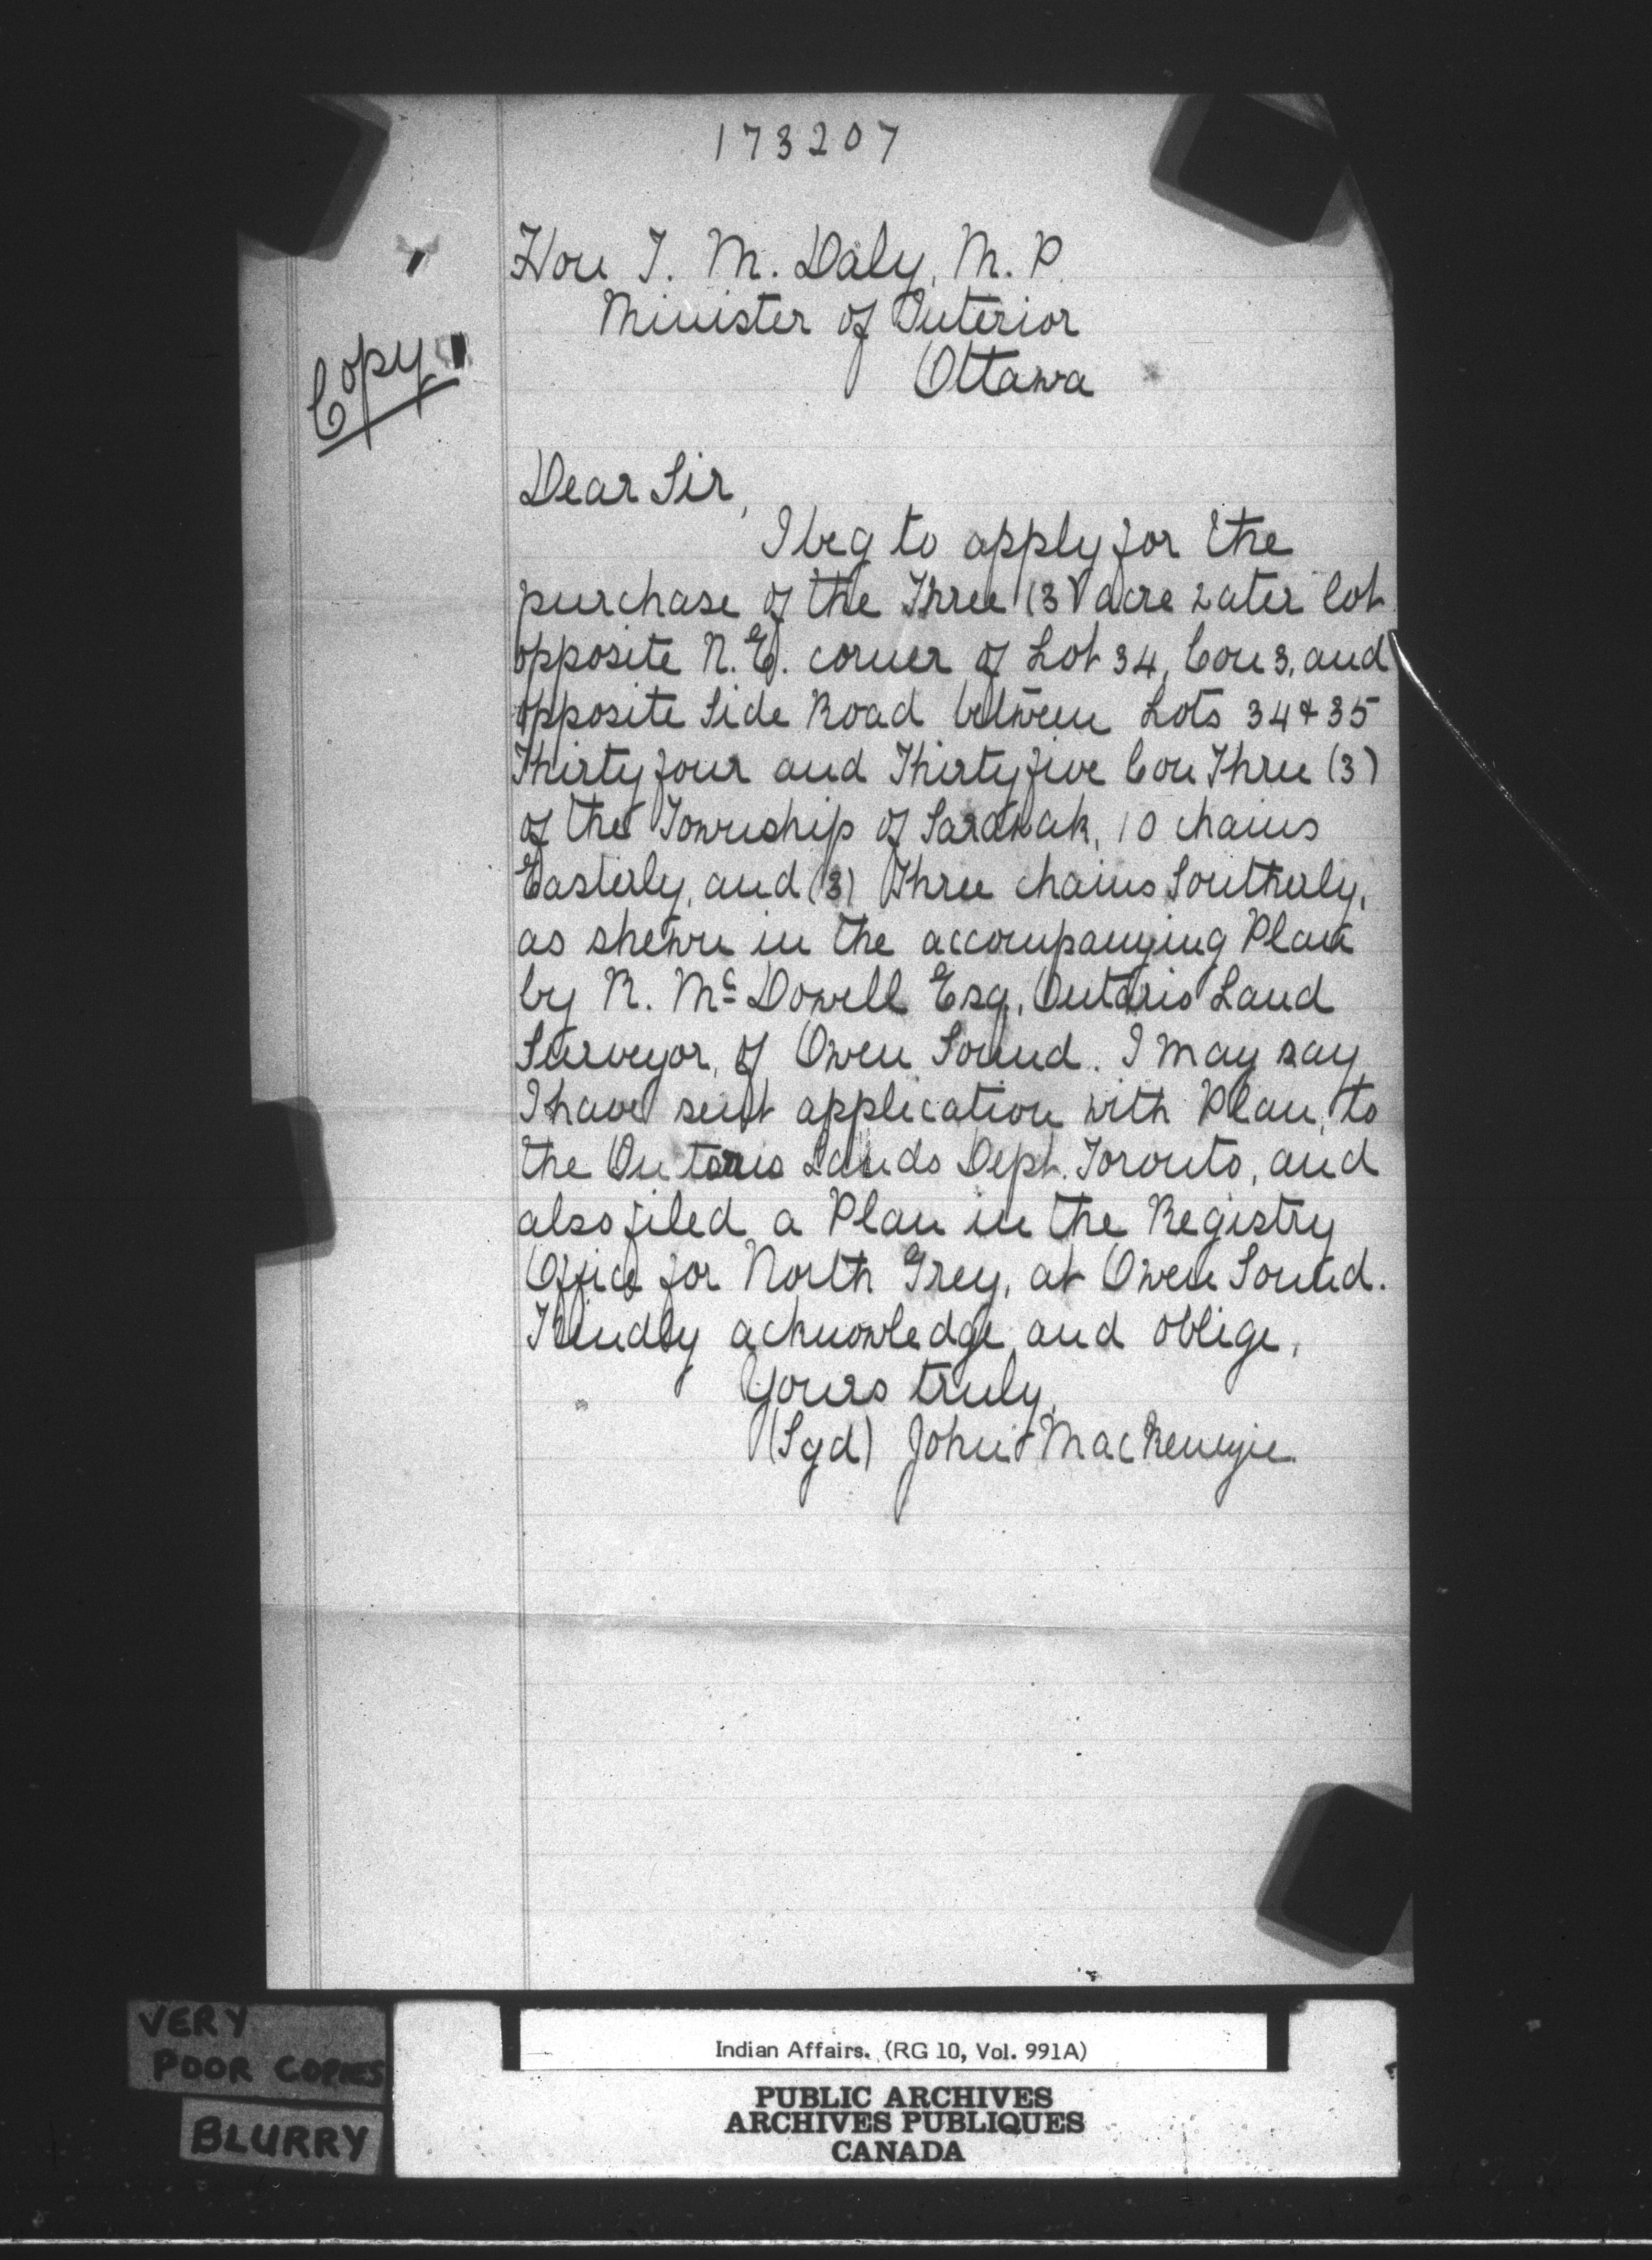 173207
Hon T. M. Daly, M. P.
Minister of Interior
Ottawa
Copy
Dear Sir,
I beg to apply for the
purchase of the Three (3) acre water lot
opposite N. E. corner of Lot 34, Con 3, and
opposite Side Road between Lots 34 & 35
Thirty four and Thirty five Con Three (3)
of the Township of Sarawak, 10 chains
Easterly, and (3) Three chains Southerly,
as shewn in the accompanying Plan
by R. McDowell Esq, Ontario Land
Surveyor, of Owen Sound. I may say
I have sent application with Plan, to
the Ontario Lands Dept. Toronto, and
also filed a Plan in the Registry
Office for North Grey, at Owen Sound.
Kindly acknowledge, and oblige,
Yours truly,
(Sgd) John MacKenzie
VERY
POOR COPIES
BLURRY
Indian Affairs. (RG 10, Vol. 991A)
PUBLIC ARCHIVES
ARCHIVES PUBLIQUES
CANADA